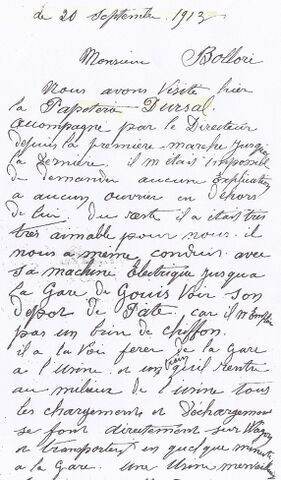 de 20 Septembre 1913
Monsieur Bolloré
Nous avons Visité hier
la Papeterie Dursal
accompagné par le Directeur
depuis la première marche jusqua
la dernière. il m etais Impossible
de demander aucune Explication
a aucun ouvrier en dehors
de lui. Du reste il a etais très
très aimable pour nous. il
nous a meme conduis avec
sa machine Electrique jusqua
la Gare de Gouis Voir son
depot de Pate car il m'emploi
pas un brin de chiffon.
il a la Voie ferer de la Gare
a l'usine. et un train qu'il rentre
au milieux de l'usine tous
les chargements et déchargemens
se font directement sur Wagon
et transporter en quelque minute
a la gare. Une Usine merveilleuse